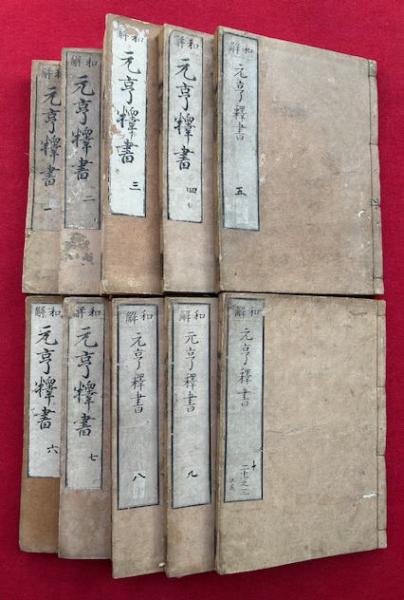 和解
元亨釋書 一
和解
元亨釋書 二
和解
元亨釋書 三
和解
元亨釋書 四
和解
元亨釋書 五
和解
元亨釋書 六
和解
元亨釋書 七
和解
元亨釋書 八
和解
元亨釋書 九
和解
元亨釋書 十